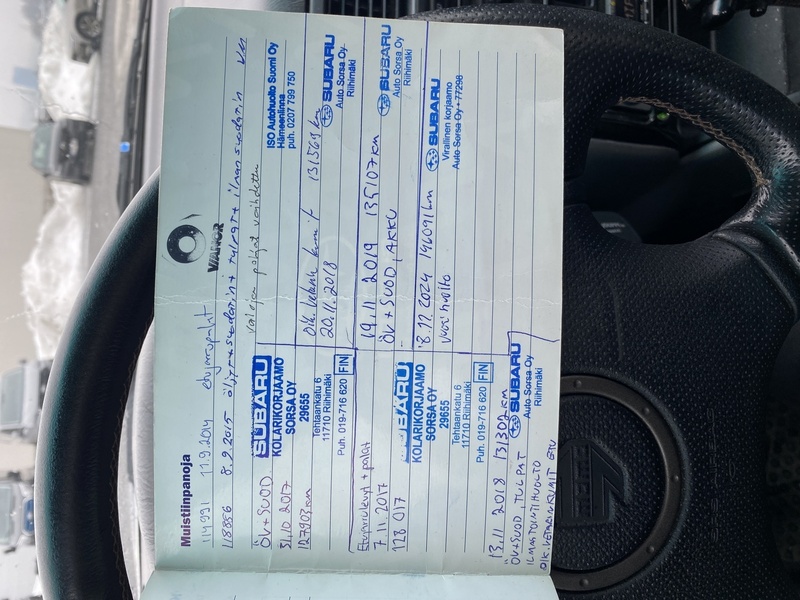 Muistiinpanoja
VIANOR
114991 11.9.2014
118856 8.9.2015 öljyt+suodatin+tulpat+ilmansuodatin km
vaihdettu
ÖV+SUOD.
SUBARU
KOLARIKORJAAMO
SORSA OY
29655
Tehtaankatu 6
11710 Riihimäki
Puh. 019-716 620 FIN
10 2017
127903 km
ISO Autohuolto Suomi Oy
Hämeenlinna
puh. 0207 799 750
20.11.2018 131.569 km
SUBARU
Auto Sorsa Oy
Riihimäki
7.11.2017
128 017
SUBARU
KOLARIKORJAAMO
SORSA OY
29655
Tehtaankatu 6
11710 Riihimäki
Puh. 019-716 620 FIN
19.11 2019 135107 km
ÖV+SUOD, AKKU
SUBARU
Auto Sorsa Oy
Riihimäki
18.12.2024 196091 km
vuosihuolto
SUBARU
Virallinen korjaamo
Auto Sorsa Oy • 77298
13.11 2018 131302 km
ÖV+SUOD, TULPAT
ILMASTOINTIHUOLTO
SUBARU
Auto Sorsa Oy
Riihimäki
MOMO